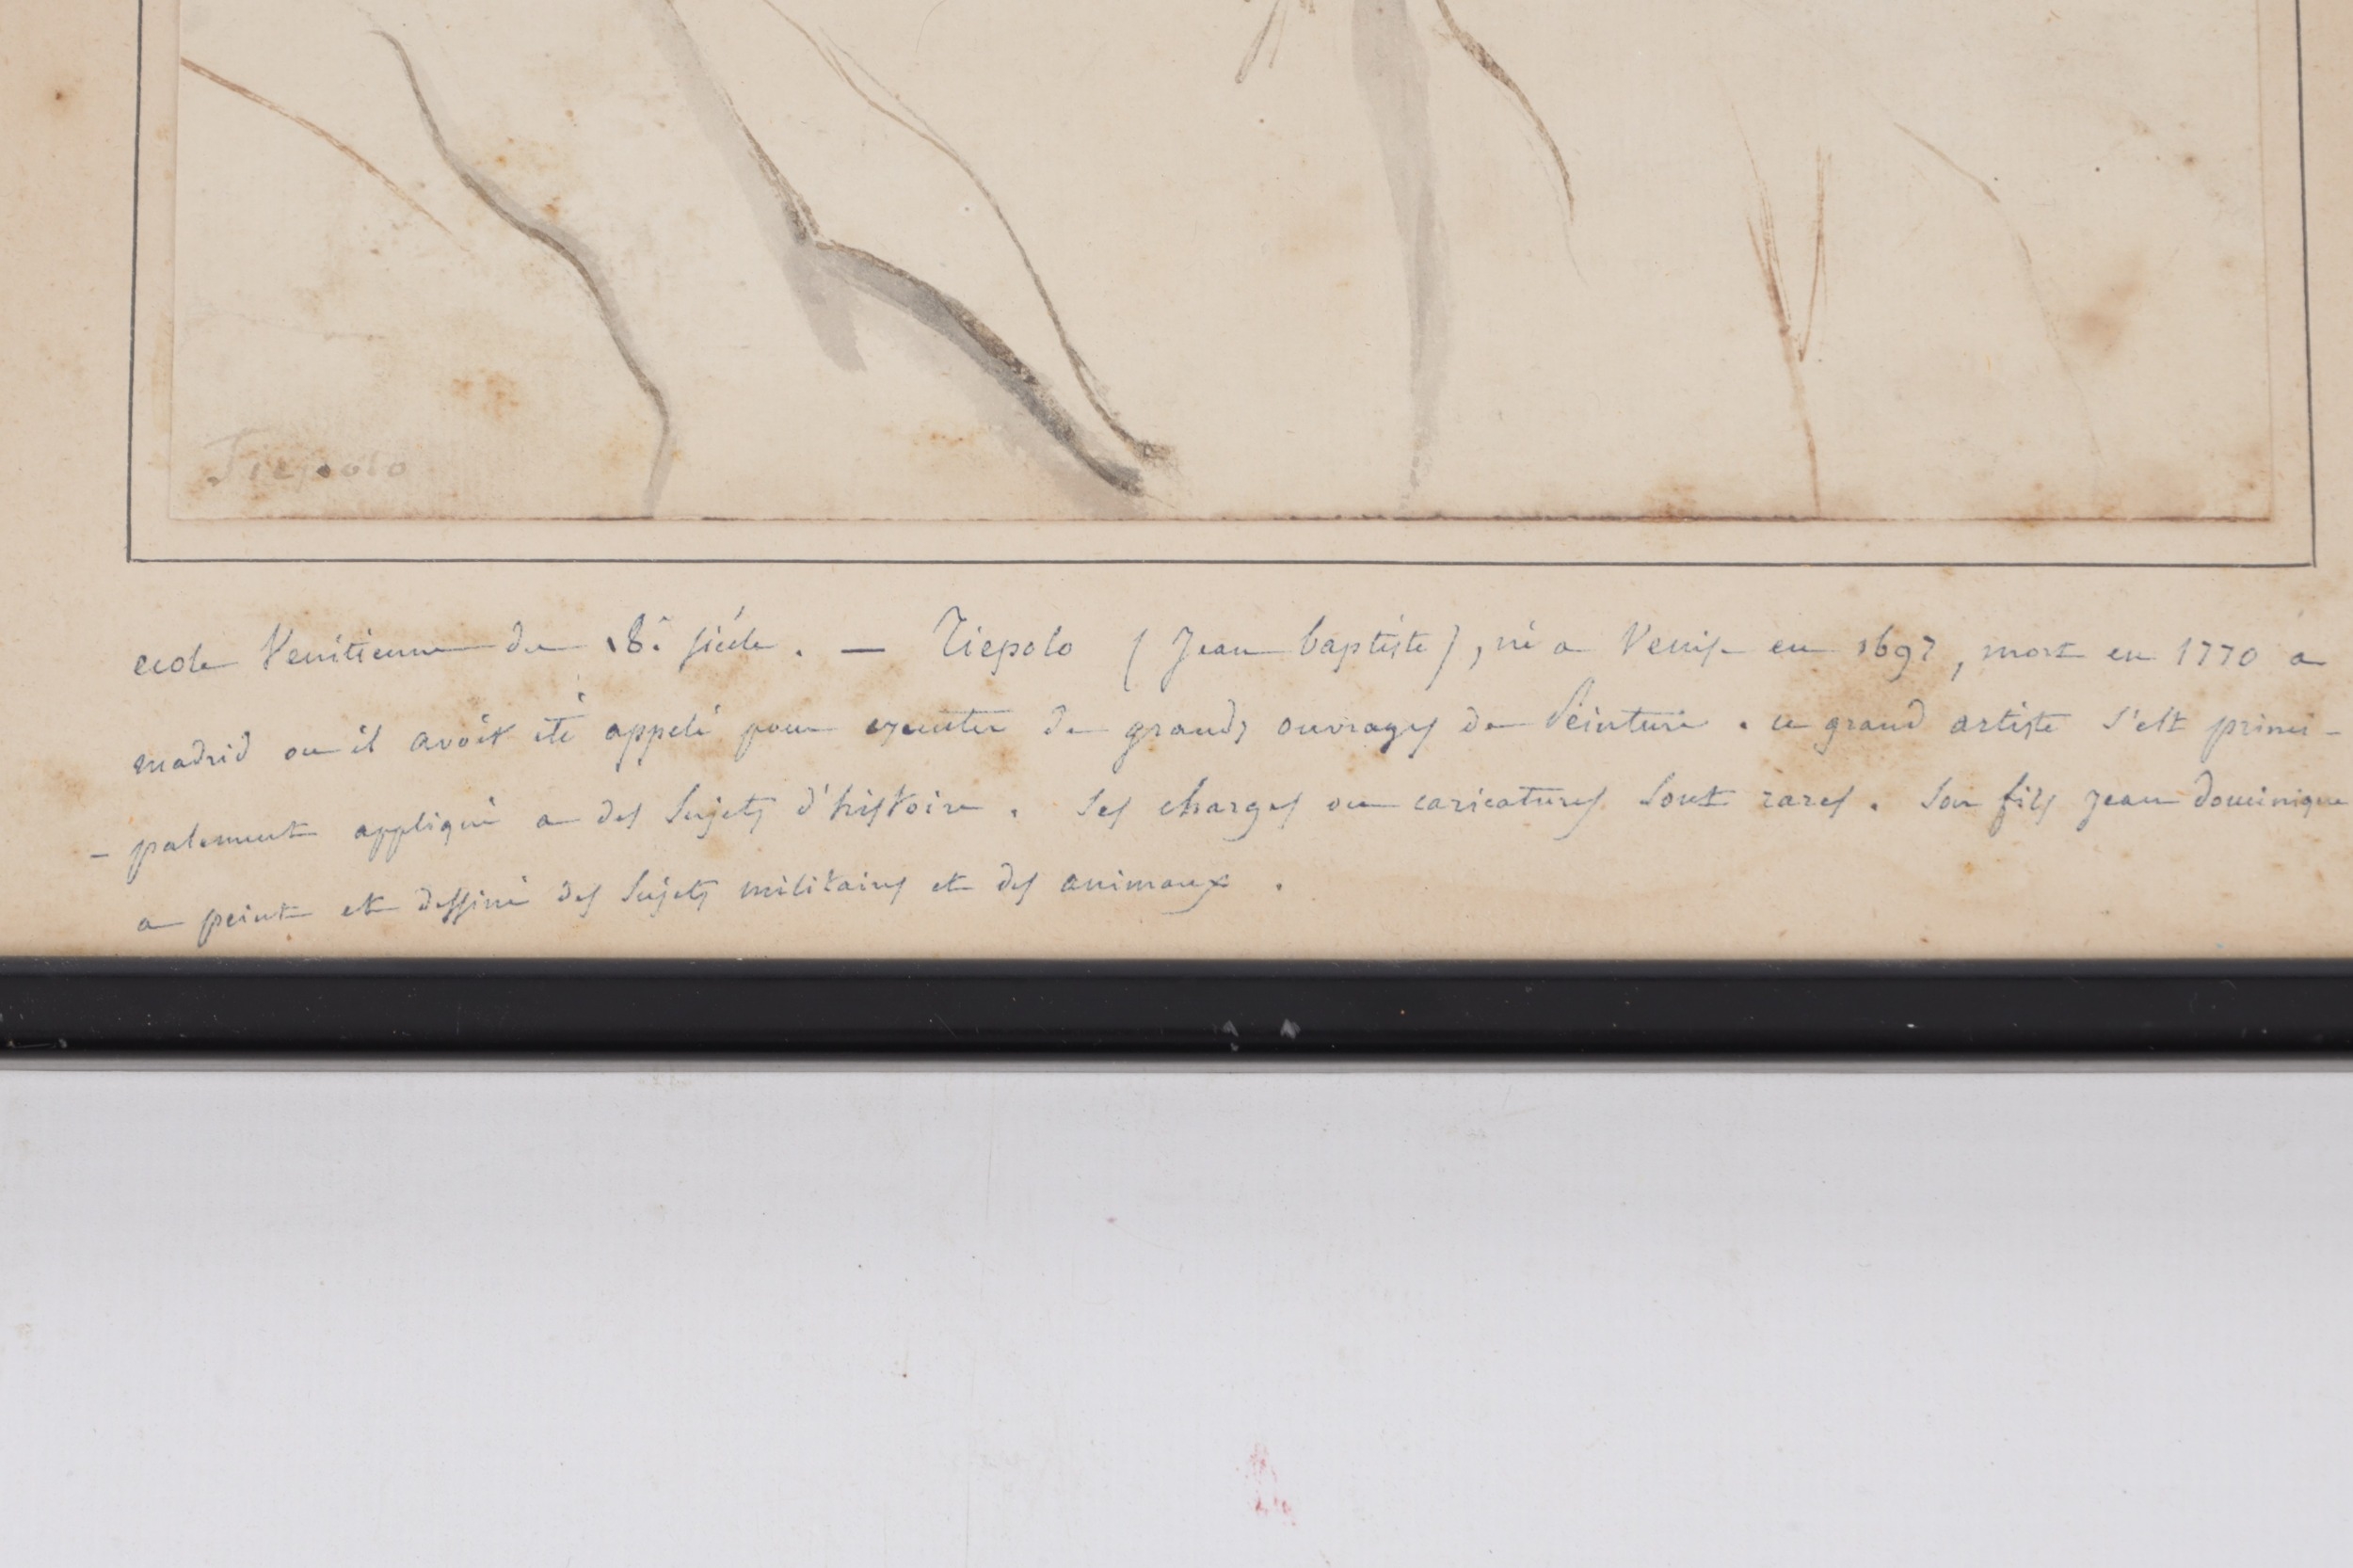 Tiepolo
ecole Venitienne du 18.e siécle. — Tiepolo (Jean baptiste), né a Venise en 1697, mort en 1770 a
madrid ou il avoit été appelé pour executer de grands ouvrages de Peinture. ce grand artiste s'est princi-
- palement appliqué a des sujets d'histoire. Ses charges ou caricatures sont rares. Son fils Jean dominique
a peint et dessiné des sujets militaires et des animaux.